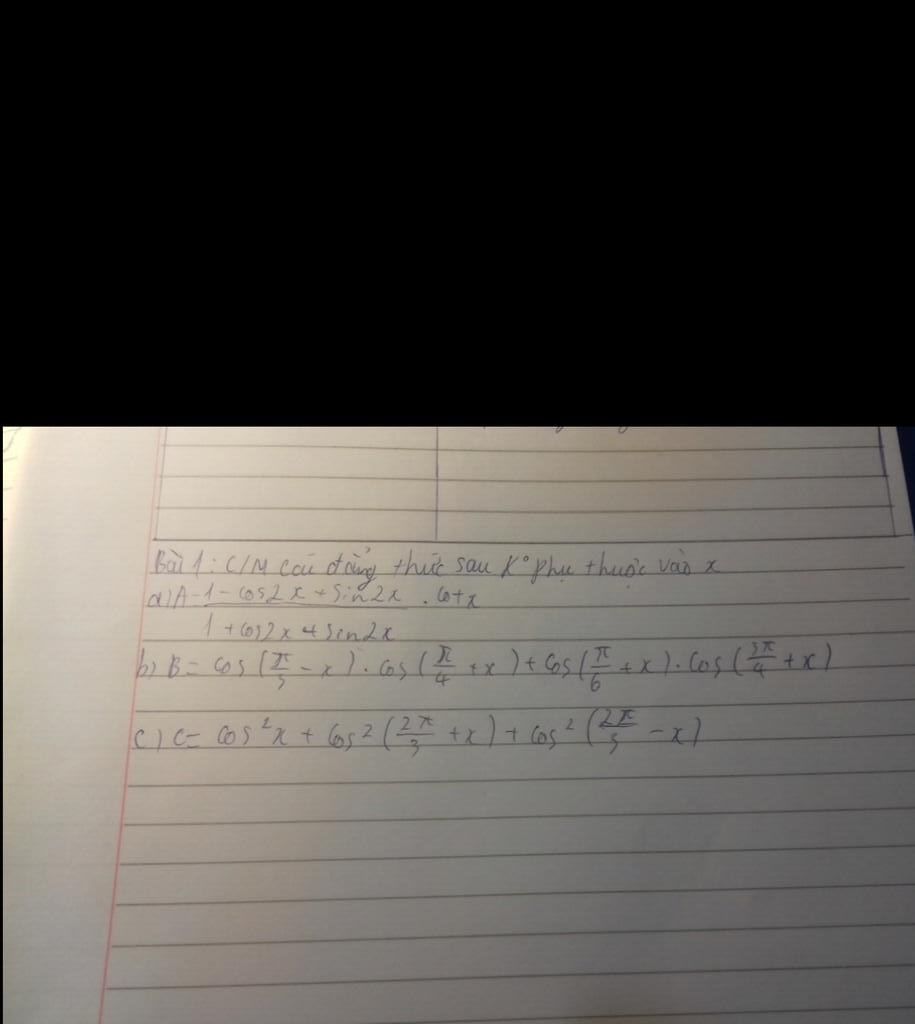 Bài 1: C/M các đẳng thức sau K° phụ thuộc vào x
a) A = \frac{1 - cos2x + sin2x}{1 + cos2x + sin2x} . cotx
b) B = cos(\frac{π}{3} - x) . cos(\frac{π}{4} + x) + cos(\frac{π}{6} + x) . cos(\frac{3π}{4} + x)
c) C = cos²x + cos²(\frac{2π}{3} + x) + cos²(\frac{2π}{3} - x)